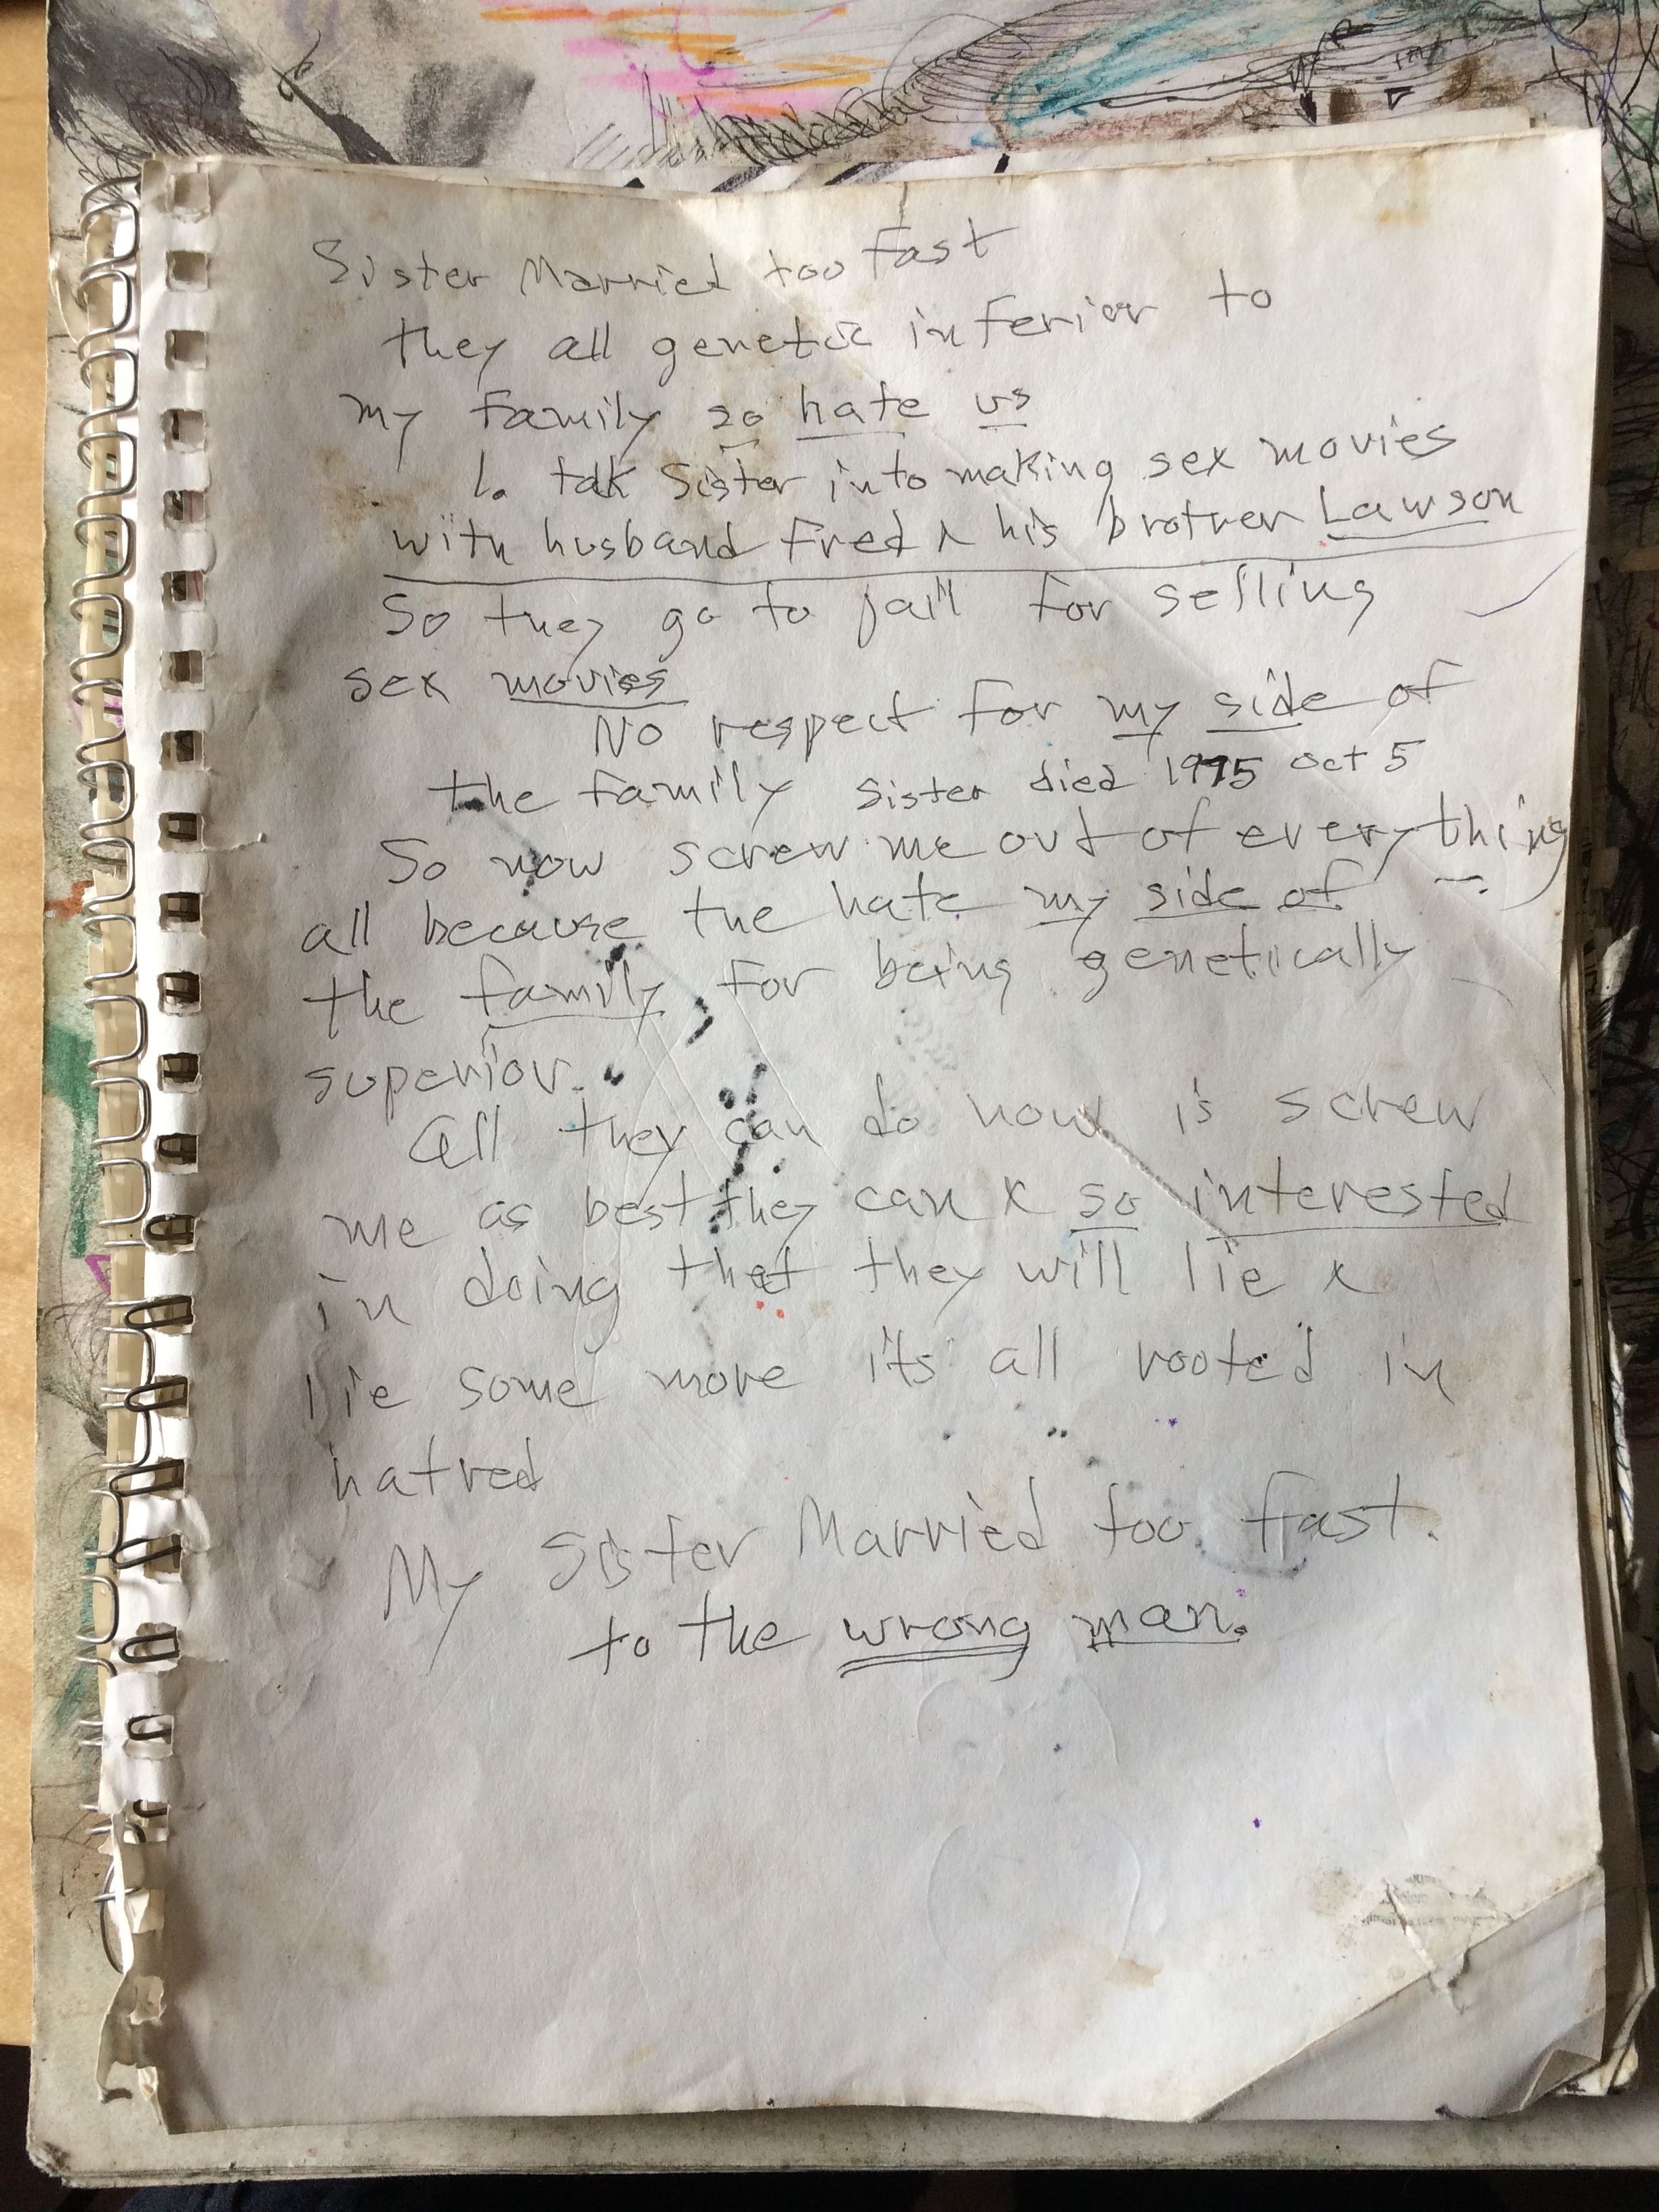 Sister Married too fast
they all genetic inferior to
my family so hate us
1. talk Sister into making sex movies
with husband Fred & his brother Lawson
So they go to jail for selling
sex movies
No respect for my side of
the family sister died 1995 oct 5
So now screw me out of everything
all because the hate my side of
the family for being genetically
superior.
All they can do now is screw
me as best they can & so interested
in doing that they will lie &
lie some more its all rooted in
hatred
My Sister Married too fast.
to the wrong man.